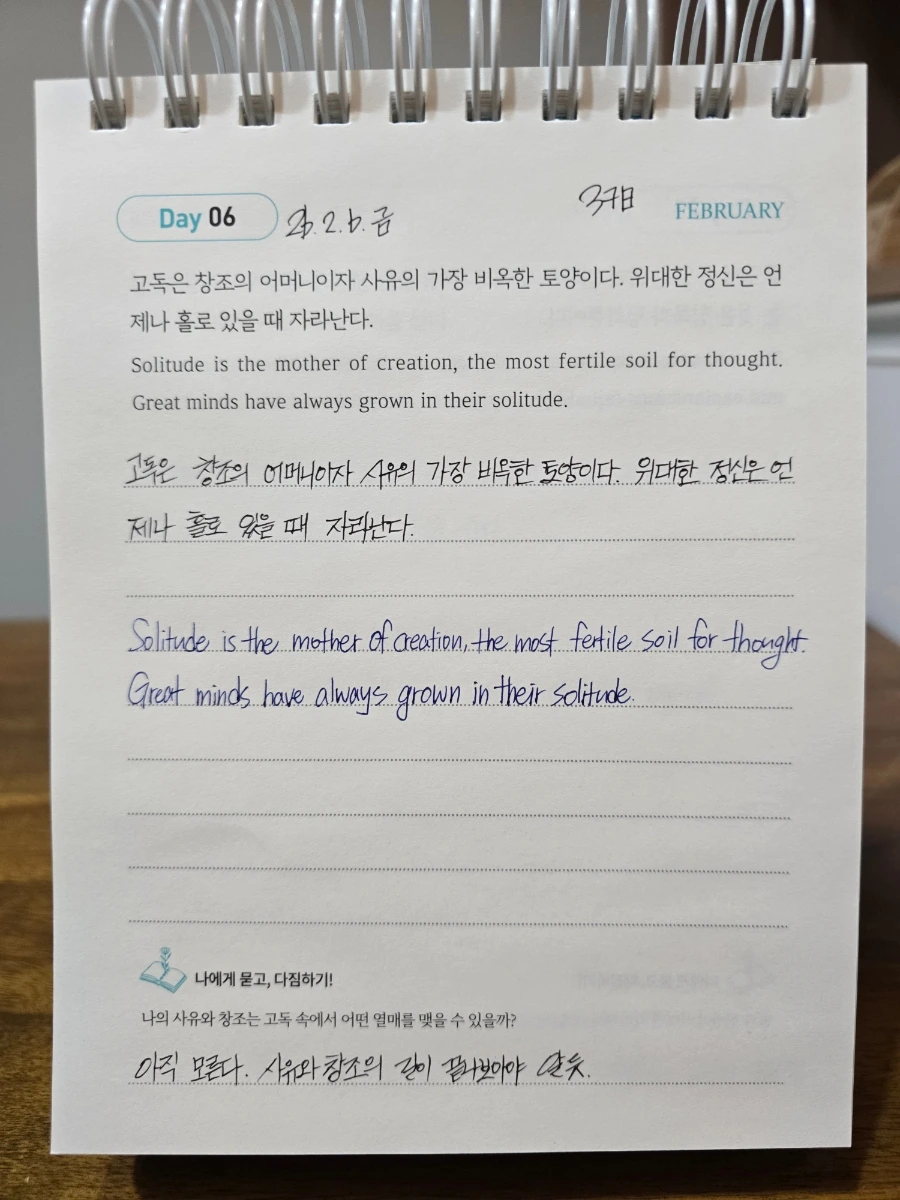 Day 06
26. 2. 6. 금
37일
FEBRUARY
고독은 창조의 어머니이자 사유의 가장 비옥한 토양이다. 위대한 정신은 언
제나 홀로 있을 때 자라난다.
Solitude is the mother of creation, the most fertile soil for thought.
Great minds have always grown in their solitude.
고독은 창조의 어머니이자 사유의 가장 비옥한 토양이다. 위대한 정신은 언
제나 홀로 있을 때 자라난다.
Solitude is the mother of creation, the most fertile soil for thought.
Great minds have always grown in their solitude.
나에게 묻고, 다짐하기!
나의 사유와 창조는 고독 속에서 어떤 열매를 맺을 수 있을까?
아직 모른다. 사유와 창조의 길이 끝나보아야 알듯.